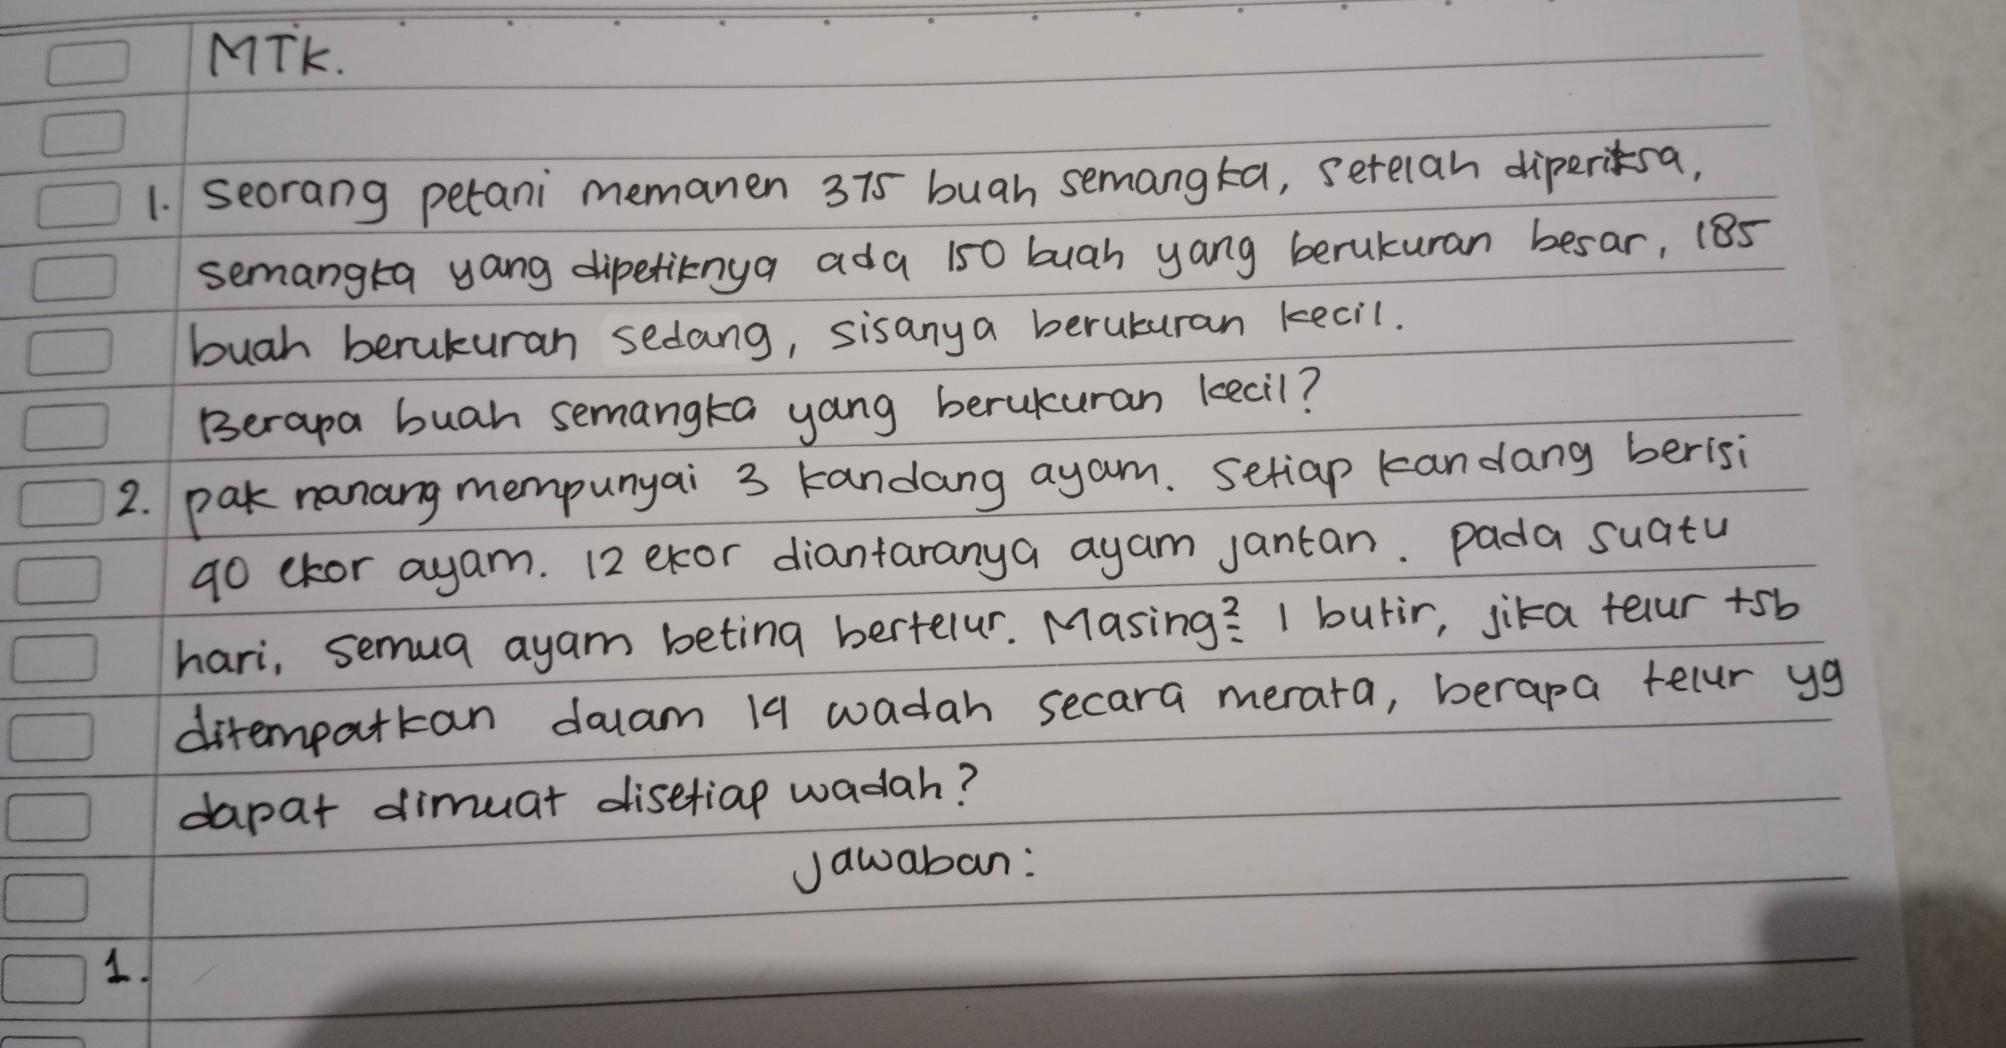 MTK.
1. Seorang petani memanen 375 buah semangka, setelah diperiksa,
semangka yang dipetiknya ada 150 buah yang berukuran besar, 185
buah berukuran sedang, sisanya berukuran kecil.
Berapa buah semangka yang berukuran kecil?
2. pak nanang mempunyai 3 kandang ayam. Setiap kandang berisi
90 ekor ayam. 12 ekor diantaranya ayam jantan. pada suatu
hari, semua ayam betina bertelur. Masing² 1 butir, jika telur tsb
ditempatkan dalam 14 wadah secara merata, berapa telur yg
dapat dimuat disetiap wadah?
Jawaban:
1.